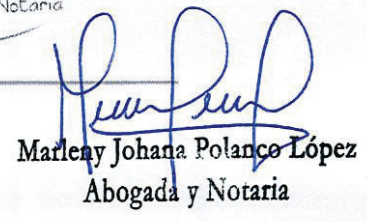 Notaria
Marleny Johana Polanco López
Abogada y Notaria